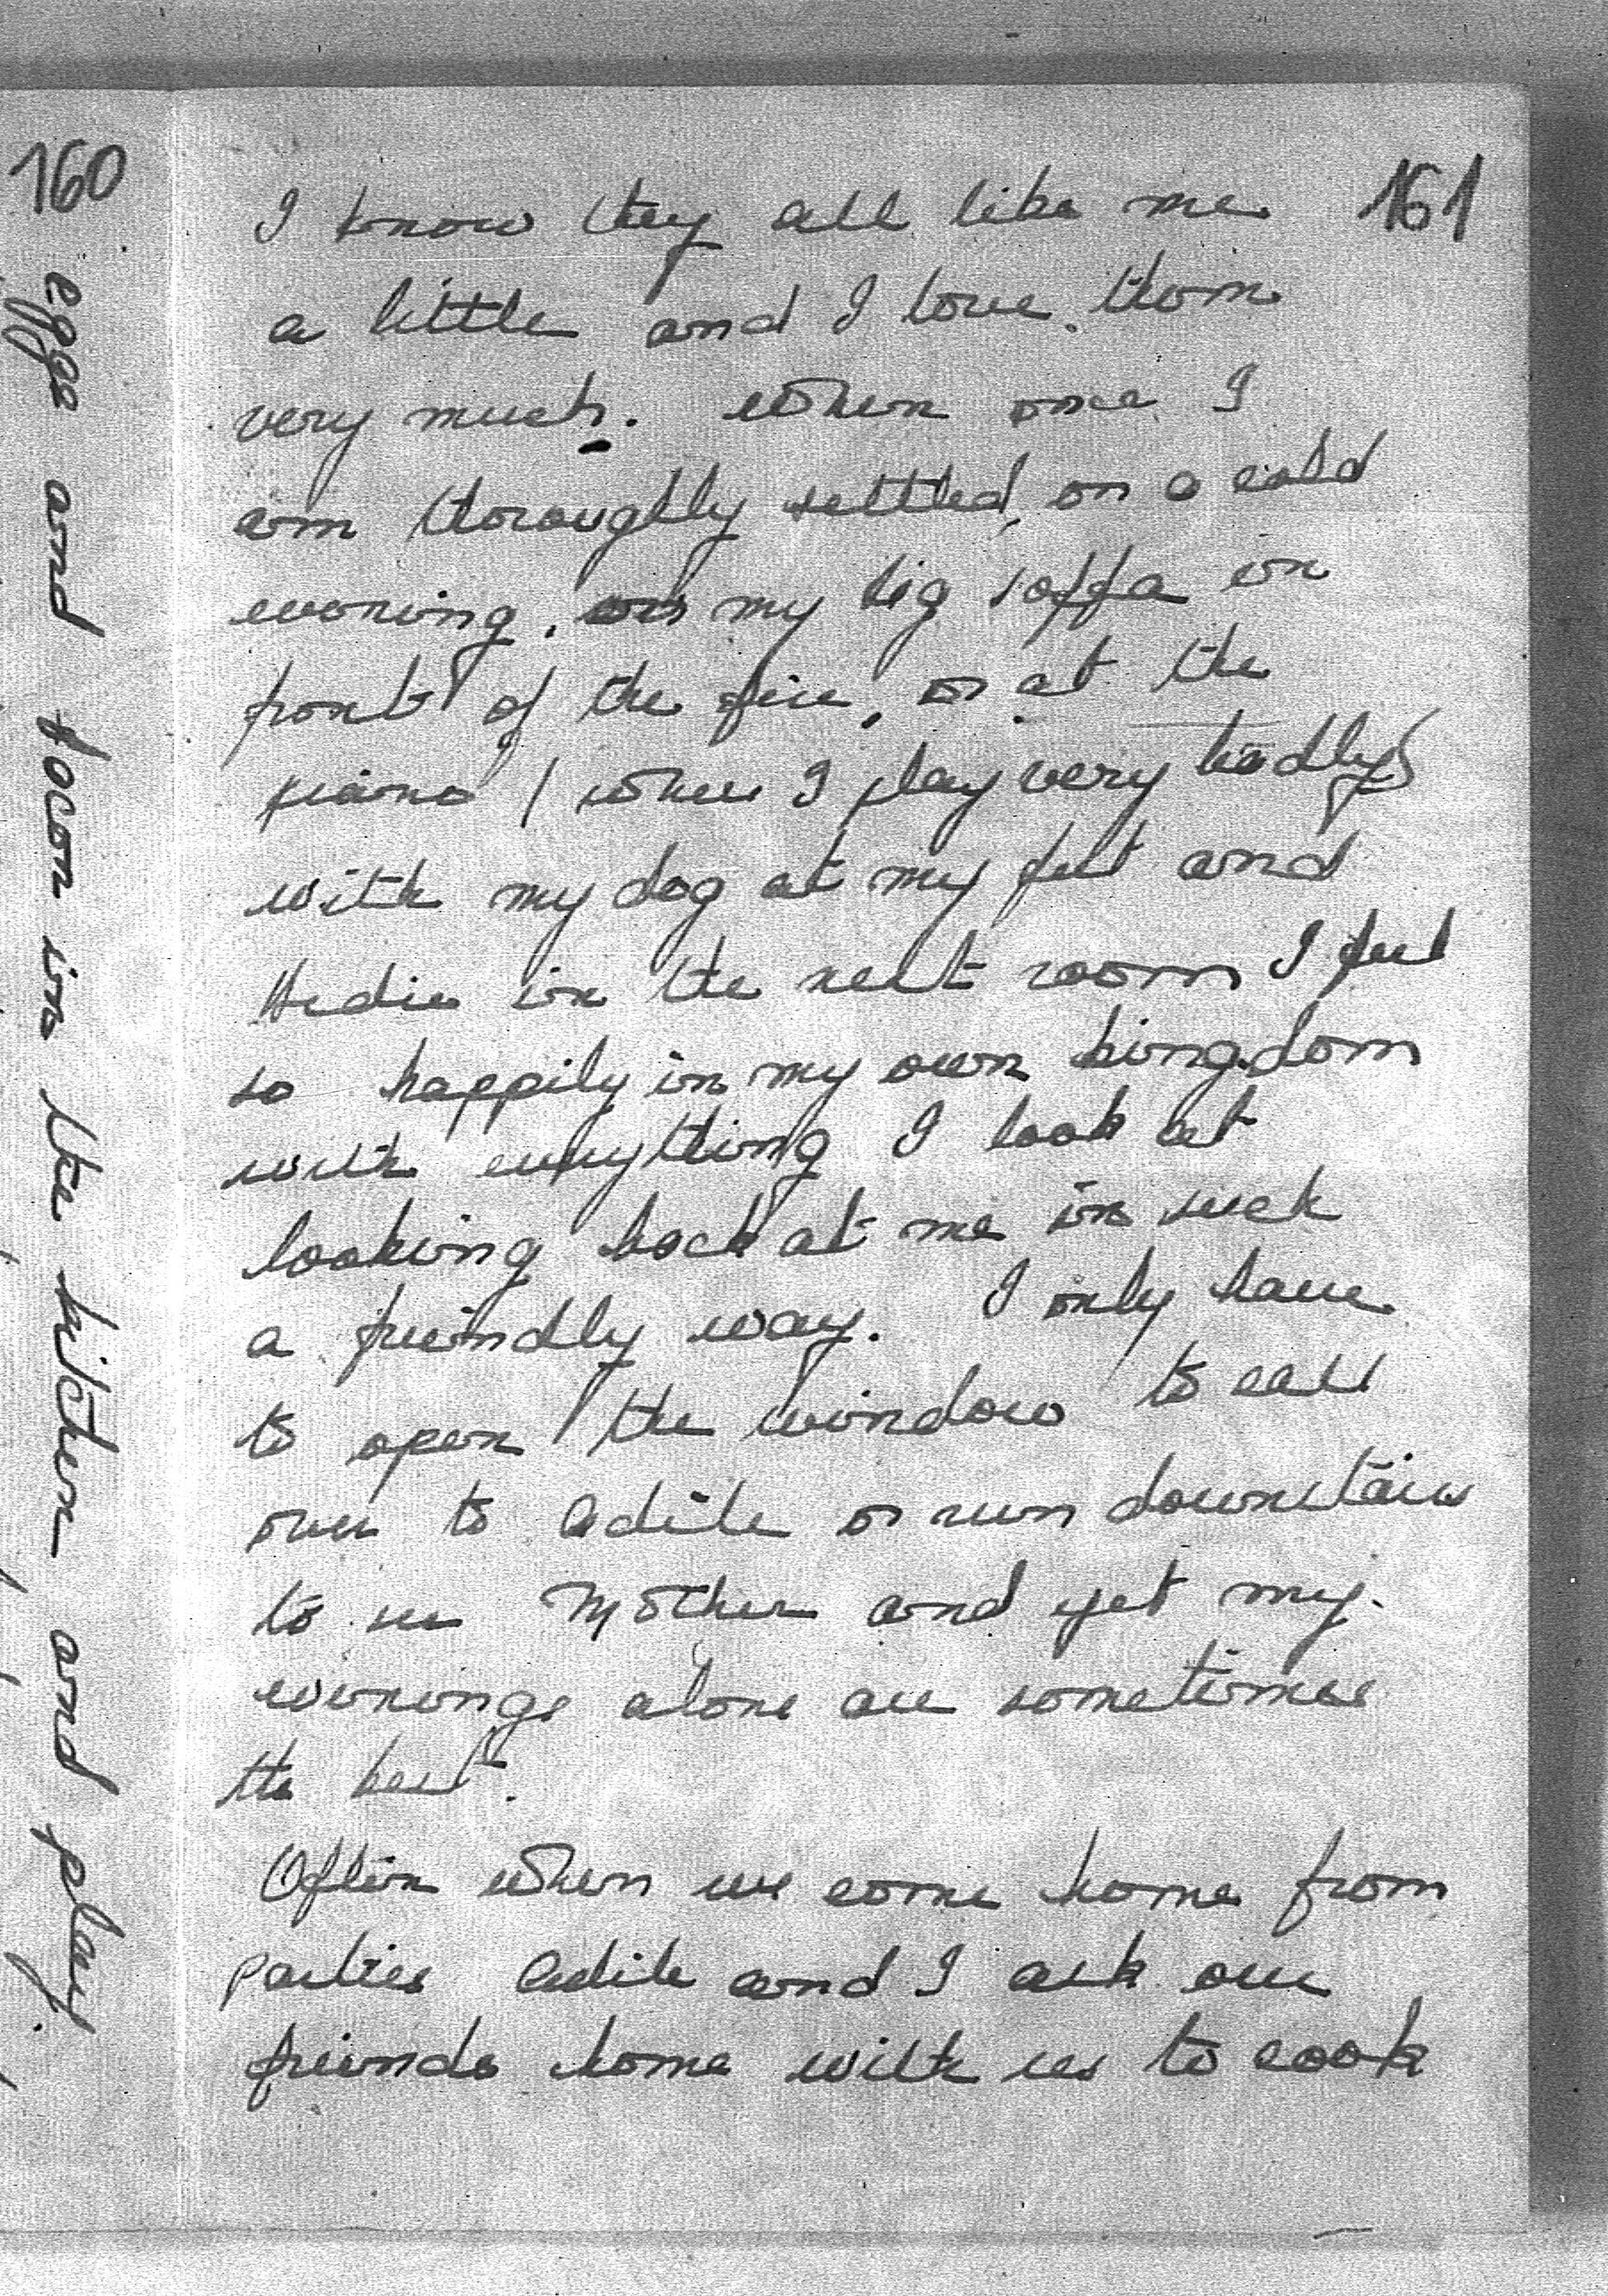 161
I know they all like me
a little and I love them
very much. When once I
am thoroughly settled, on a cold
evening, on my big soffa in
front of the fire, or at the
piano (where I play very badly)
with my dog at my feet and
Hedie in the next room I feel
so happily in my own kingdom
with everything I look at
looking back at me in such
a friendly way. I only have
to open the window to call
over to Edile or run downstairs
to see Mother and yet my
evenings alone are sometimes
the best.
Often when we come home from
parties Edile and I ask our
friends home with us to cook
160
eggs and bacon in the kitchen and play.